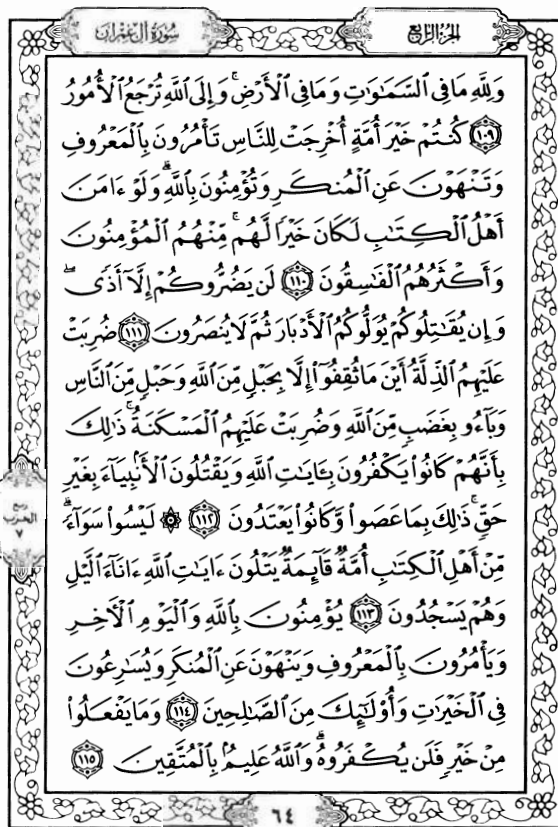 سُورَةُ آلِ عِمْرَان
الجُزْءُ الرَّابِعُ
وَلِلَّهِ مَا فِى ٱلسَّمَٰوَٰتِ وَمَا فِى ٱلْأَرْضِ ۚ وَإِلَى ٱللَّهِ تُرْجَعُ ٱلْأُمُورُ
١٠٩ كُنتُمْ خَيْرَ أُمَّةٍ أُخْرِجَتْ لِلنَّاسِ تَأْمُرُونَ بِٱلْمَعْرُوفِ
وَتَنْهَوْنَ عَنِ ٱلْمُنكَرِ وَتُؤْمِنُونَ بِٱللَّهِ ۗ وَلَوْ ءَامَنَ
أَهْلُ ٱلْكِتَٰبِ لَكَانَ خَيْرًا لَّهُم ۚ مِّنْهُمُ ٱلْمُؤْمِنُونَ
وَأَكْثَرُهُمُ ٱلْفَٰسِقُونَ ١١٠ لَن يَضُرُّوكُمْ إِلَّآ أَذًى ۖ
وَإِن يُقَٰتِلُوكُمْ يُوَلُّوكُمُ ٱلْأَدْبَارَ ثُمَّ لَا يُنصَرُونَ ١١١ ضُرِبَتْ
عَلَيْهِمُ ٱلذِّلَّةُ أَيْنَ مَا ثُقِفُوٓا۟ إِلَّا بِحَبْلٍ مِّنَ ٱللَّهِ وَحَبْلٍ مِّنَ ٱلنَّاسِ
وَبَآءُو بِغَضَبٍ مِّنَ ٱللَّهِ وَضُرِبَتْ عَلَيْهِمُ ٱلْمَسْكَنَةُ ۚ ذَٰلِكَ
بِأَنَّهُمْ كَانُوا۟ يَكْفُرُونَ بِـَٔايَٰتِ ٱللَّهِ وَيَقْتُلُونَ ٱلْأَنۢبِيَآءَ بِغَيْرِ
حَقٍّ ۚ ذَٰلِكَ بِمَا عَصَوا۟ وَّكَانُوا۟ يَعْتَدُونَ ١١٢ ۞ لَيْسُوا۟ سَوَآءً ۗ
مِّنْ أَهْلِ ٱلْكِتَٰبِ أُمَّةٌ قَآئِمَةٌ يَتْلُونَ ءَايَٰتِ ٱللَّهِ ءَانَآءَ ٱلَّيْلِ
وَهُمْ يَسْجُدُونَ ١١٣ يُؤْمِنُونَ بِٱللَّهِ وَٱلْيَوْمِ ٱلْـَٔاخِرِ
وَيَأْمُرُونَ بِٱلْمَعْرُوفِ وَيَنْهَوْنَ عَنِ ٱلْمُنكَرِ وَيُسَٰرِعُونَ
فِى ٱلْخَيْرَٰتِ وَأُو۟لَٰٓئِكَ مِنَ ٱلصَّٰلِحِينَ ١١٤ وَمَا يَفْعَلُوا۟
مِنْ خَيْرٍ فَلَن يُكْفَرُوهُ ۗ وَٱللَّهُ عَلِيمٌۢ بِٱلْمُتَّقِينَ ١١٥
ربع
الحزب
٧
٦٤